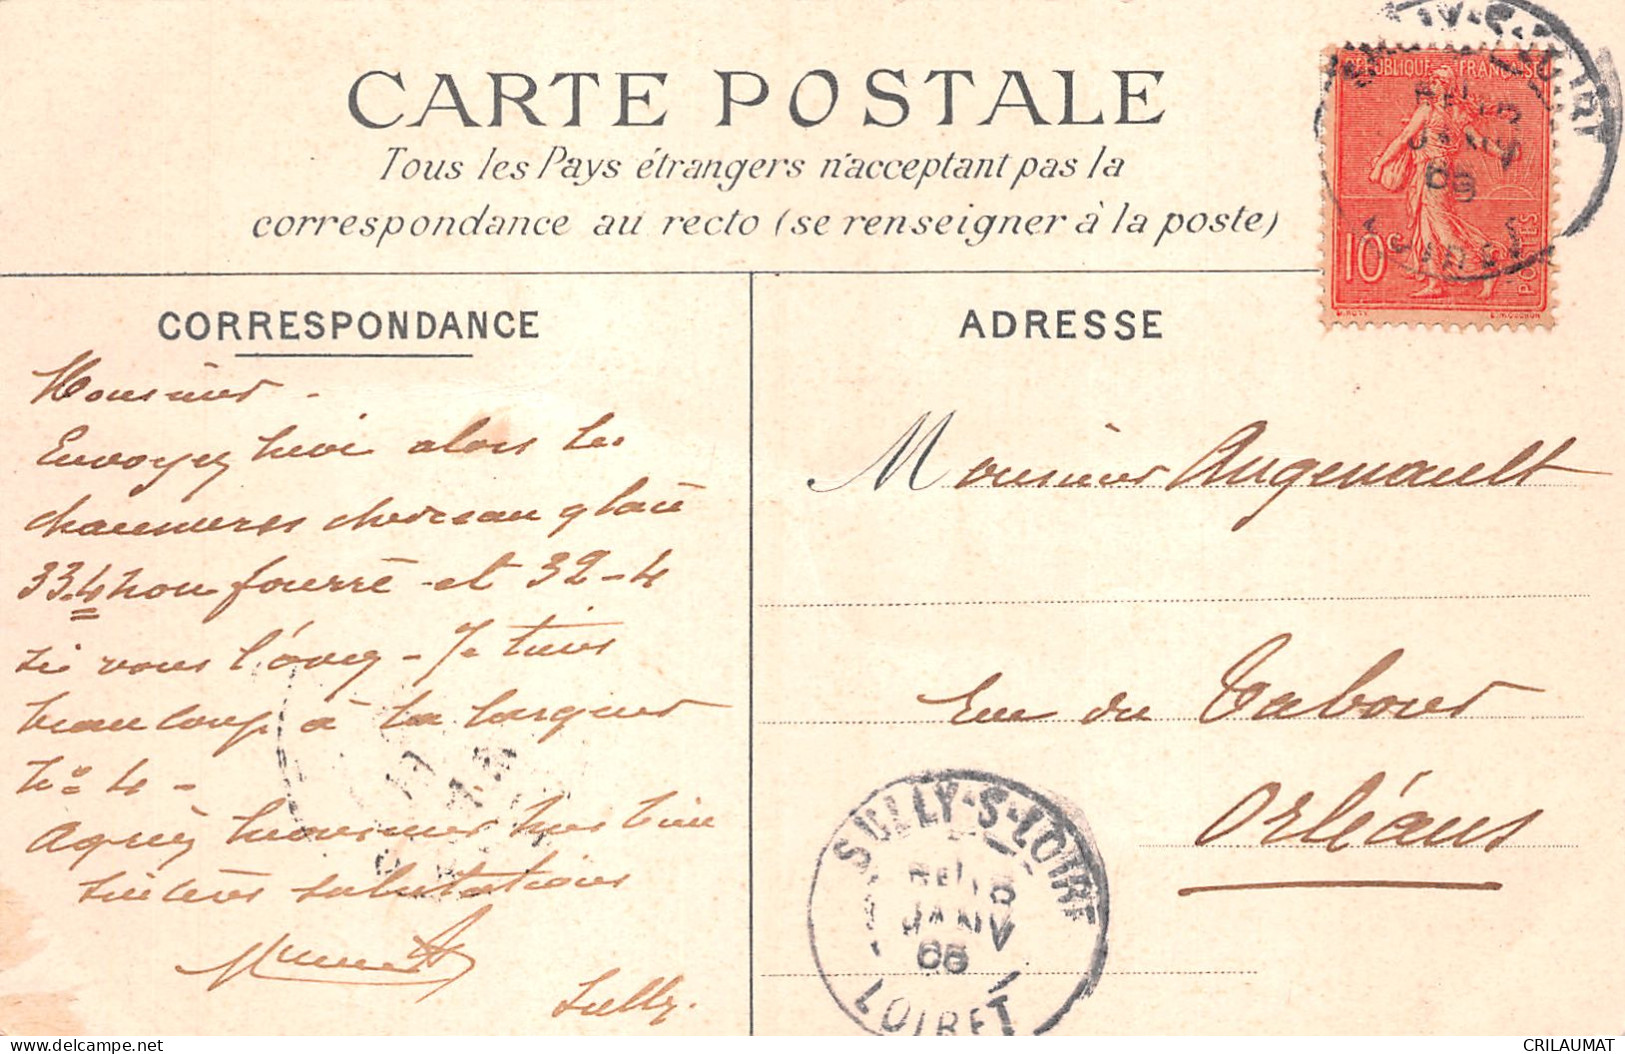 CARTE POSTALE
Tous les Pays étrangers n'acceptant pas la
correspondance au recto (se renseigner à la poste)
RÉPUBLIQUE FRANÇAISE
10c
POSTES
CORRESPONDANCE
ADRESSE
Monsieur
Envoyez moi alors les
chaussures chevreau glacé
33.4 non fourré et 32-4
si vous l'avez - Je tiens
beaucoup à la largeur
No 4 -
Agréez monsieur mes bien
sincères salutations
Sully.
Monsieur Augenault
Rue du Tabour
Orléans
SULLY-S-LOIRE
JANV
LOIRET
CRILAUMAT